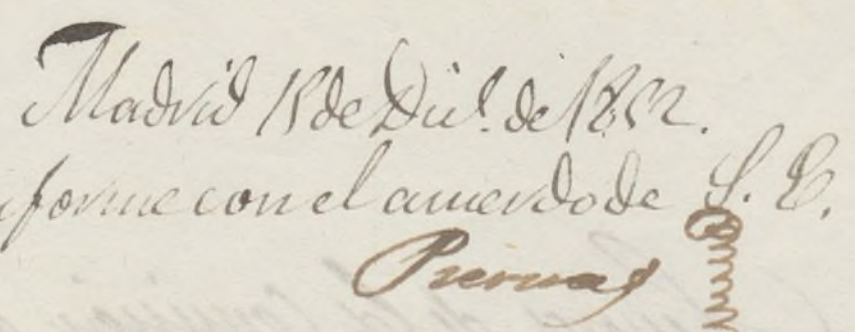 Madrid 15 de Dic.e de 1852.
nforme con el acuerdo de S. E.